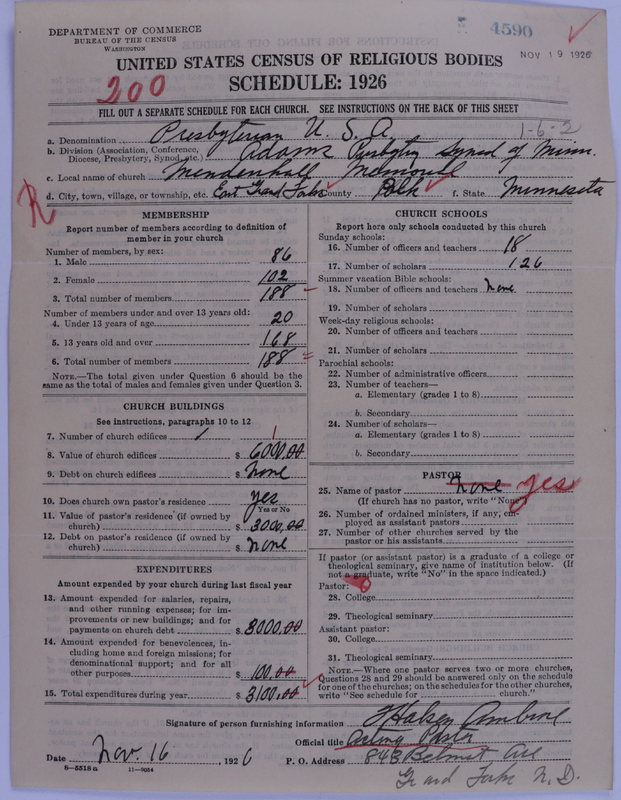 DEPARTMENT OF COMMERCE
BUREAU OF THE CENSUS
WASHINGTON
4590
NOV 19 1926
UNITED STATES CENSUS OF RELIGIOUS BODIES
SCHEDULE: 1926
200
FILL OUT A SEPARATE SCHEDULE FOR EACH CHURCH. SEE INSTRUCTIONS ON THE BACK OF THIS SHEET
a. Denomination Presbyterian U. S. A. 1-6-2
b. Division (Association, Conference, Diocese, Presbytery, Synod, etc.) Adams Presbytry Synod of Minn.
c. Local name of church Mendenhall Memorial
d. City, town, village, or township, etc. East Grand Forks County Polk f. State Minnesota
R
MEMBERSHIP
Report number of members according to definition of
member in your church
Number of members, by sex:
1. Male 86
2. Female 102
3. Total number of members 188
Number of members under and over 13 years old:
4. Under 13 years of age 20
5. 13 years old and over 168
6. Total number of members 188
NOTE.—The total given under Question 6 should be
same as the total of males and females given under Question 3.
CHURCH BUILDINGS
See instructions, paragraphs 10 to 12
7. Number of church edifices 1 1
8. Value of church edifices $ 6000.00
9. Debt on church edifices $ None
10. Does church own pastor's residence Yes
Yes or No
11. Value of pastor's residence (if owned by
church) $ 3000.00
12. Debt on pastor's residence (if owned by
church) $ None
EXPENDITURES
Amount expended by your church during last fiscal year
13. Amount expended for salaries, repairs,
and other running expenses; for im-
provements or new buildings; and for
payments on church debt $ 3000.00
14. Amount expended for benevolences, in-
cluding home and foreign missions; for
denominational support; and for all
other purposes $ 100.00
15. Total expenditures during year $ 3100.00
CHURCH SCHOOLS
Report here only schools conducted by this church
Sunday schools:
16. Number of officers and teachers 18
17. Number of scholars 126
Summer vacation Bible schools:
18. Number of officers and teachers None
19. Number of scholars
Week-day religious schools:
20. Number of officers and teachers
21. Number of scholars
Parochial schools:
22. Number of administrative officers
23. Number of teachers—
a. Elementary (grades 1 to 8)
b. Secondary
24. Number of scholars—
a. Elementary (grades 1 to 8)
b. Secondary
PASTOR
25. Name of pastor None yes
(If church has no pastor, write "None")
26. Number of ordained ministers, if any, em-
ployed as assistant pastors
27. Number of other churches served by the
pastor or his assistants
If pastor (or assistant pastor) is a graduate of a college or
theological seminary, give name of institution below. (If
not a graduate, write "No" in the space indicated.)
Pastor:
28. College
29. Theological seminary
Assistant pastor:
30. College
31. Theological seminary
NOTE.—Where one pastor serves two or more churches,
Questions 28 and 29 should be answered only on the schedule
for one of the churches; on the schedules for the other churches,
write "See schedule for church."
Signature of person furnishing information Halsey
Official title Acting Pastor
Date Nov. 16, 1926 P. O. Address 843 Belmont Ave
8-5518 a 11-9054 Grand Forks N. D.